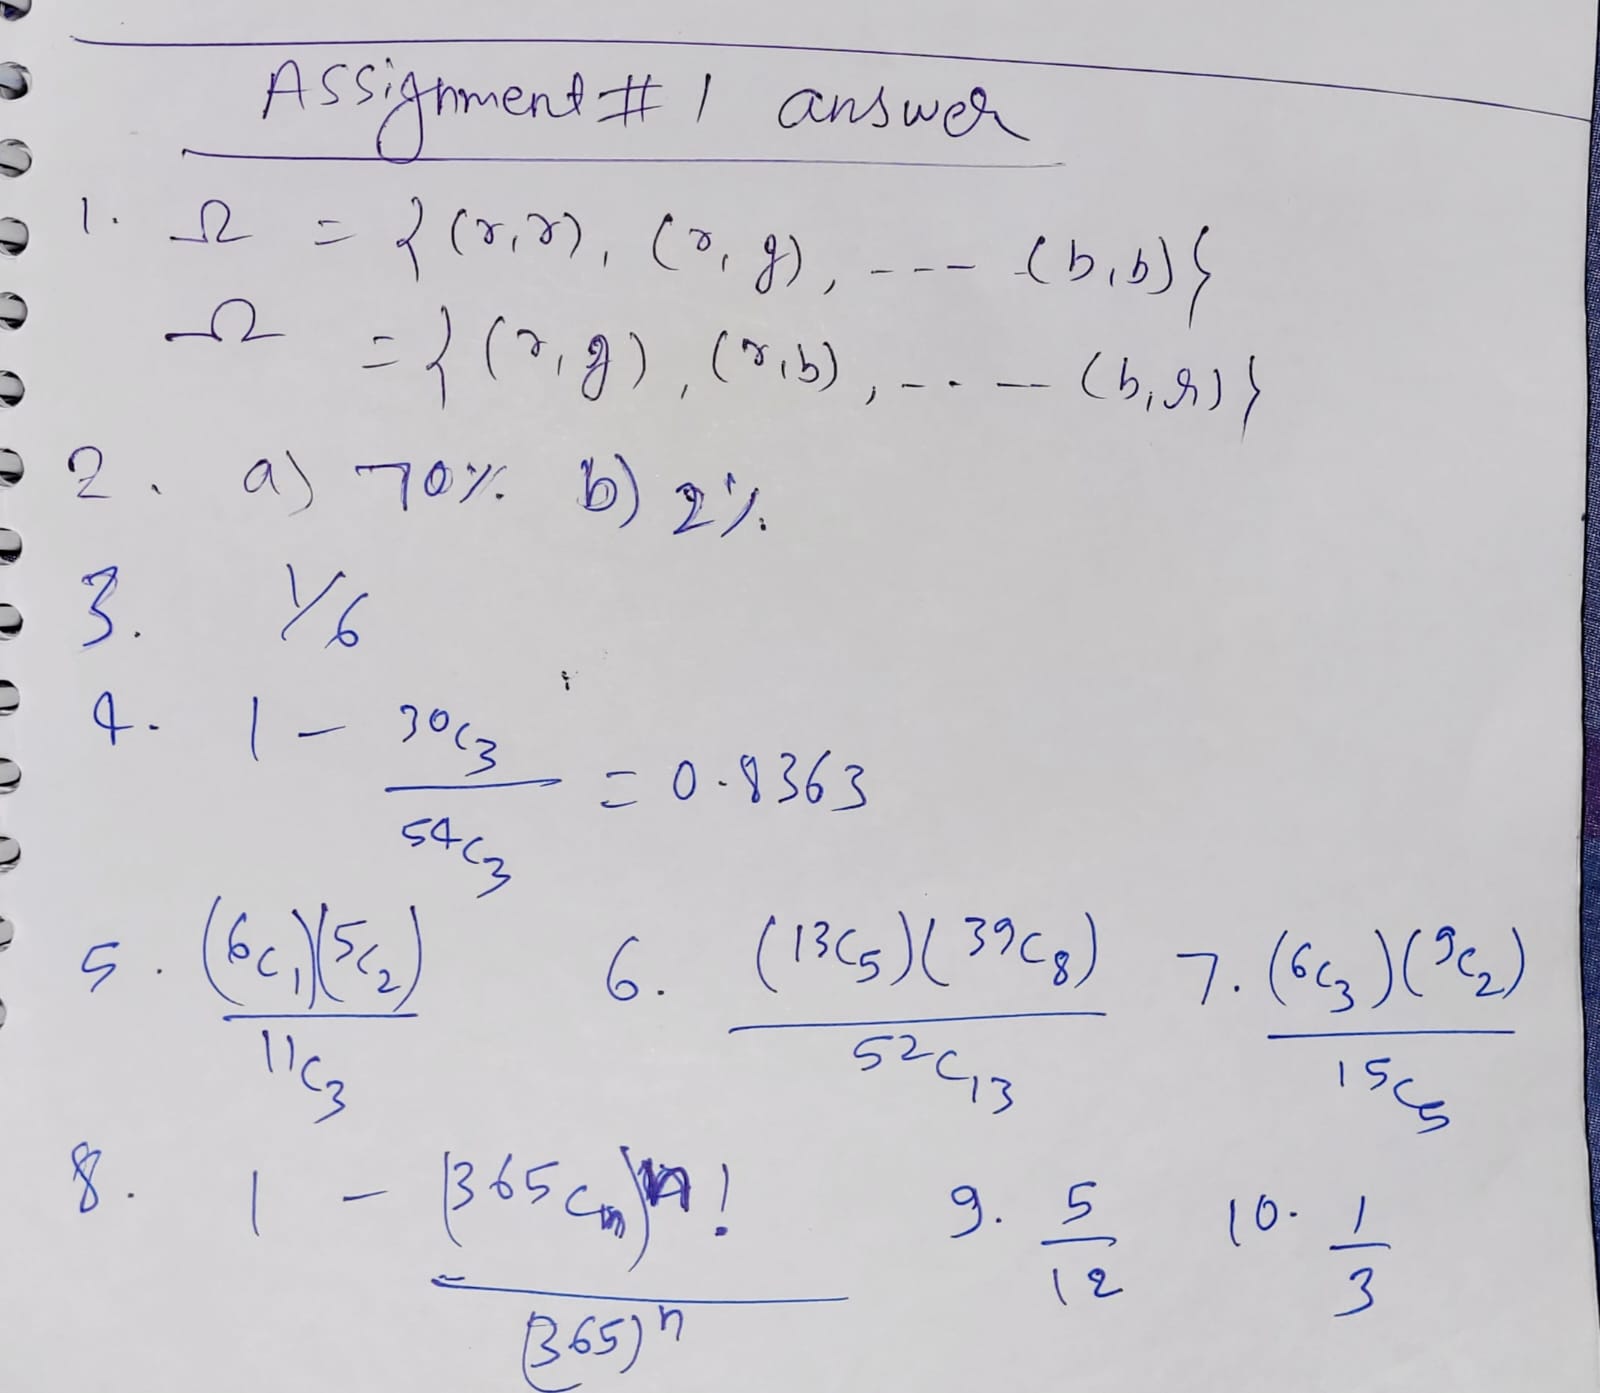 Assignment # 1 answer
1. Ω = {(r,r), (r,g), --- (b,b)}
Ω = {(r,g), (r,b), --- (b,r)}
2. a) 70% b) 2%
3. 1/6
4. 1 - 30C3 / 54C3 = 0.8363
5. (6C1)(5C2) / 11C3 6. (13C5)(39C8) / 52C13 7. (6C3)(9C2) / 15C5
8. 1 - (365Cn)n! / (365)^n 9. 5/12 10. 1/3